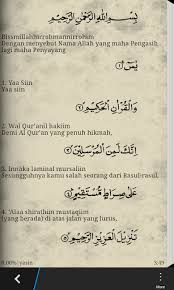 بِسْمِ اللَّهِ الرَّحْمَٰنِ الرَّحِيمِ
Bissmillahirrahmannirrohim
Dengan menyebut Nama Allah yang maha Pengasih
lagi maha Penyayang
يس ۝١
1. Yaa Siin
Yaa siin
وَالْقُرْآنِ الْحَكِيمِ ۝٢
2. Wal Qur'anil hakiim
Demi Al Qur'an yang penuh hikmah,
إِنَّكَ لَمِنَ الْمُرْسَلِينَ ۝٣
3. Innaka laminal mursaliin
Sesungguhnya kamu salah seorang dari Rasul-rasul,
عَلَىٰ صِرَاطٍ مُسْتَقِيمٍ ۝٤
4. 'Alaa shirathin mustaqiim
(yang berada) di atas jalan yang lurus,
تَنْزِيلَ الْعَزِيزِ الرَّحِيمِ ۝٥
0.00% yasin 3:49
More